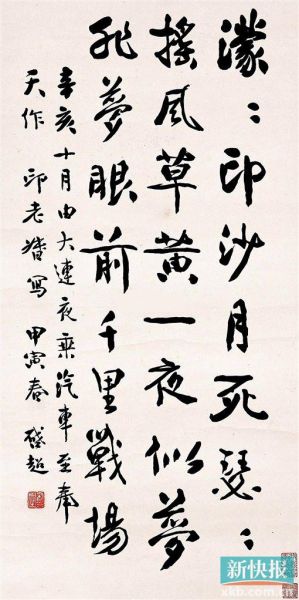 濛濛印沙月死瑟瑟
搖風草黃一夜似夢
非夢眼前千里戰場
辛亥十月由大連夜乘汽車至奉
天作 印老督寫 甲寅春 啟超
新快报
xkb.com.cn